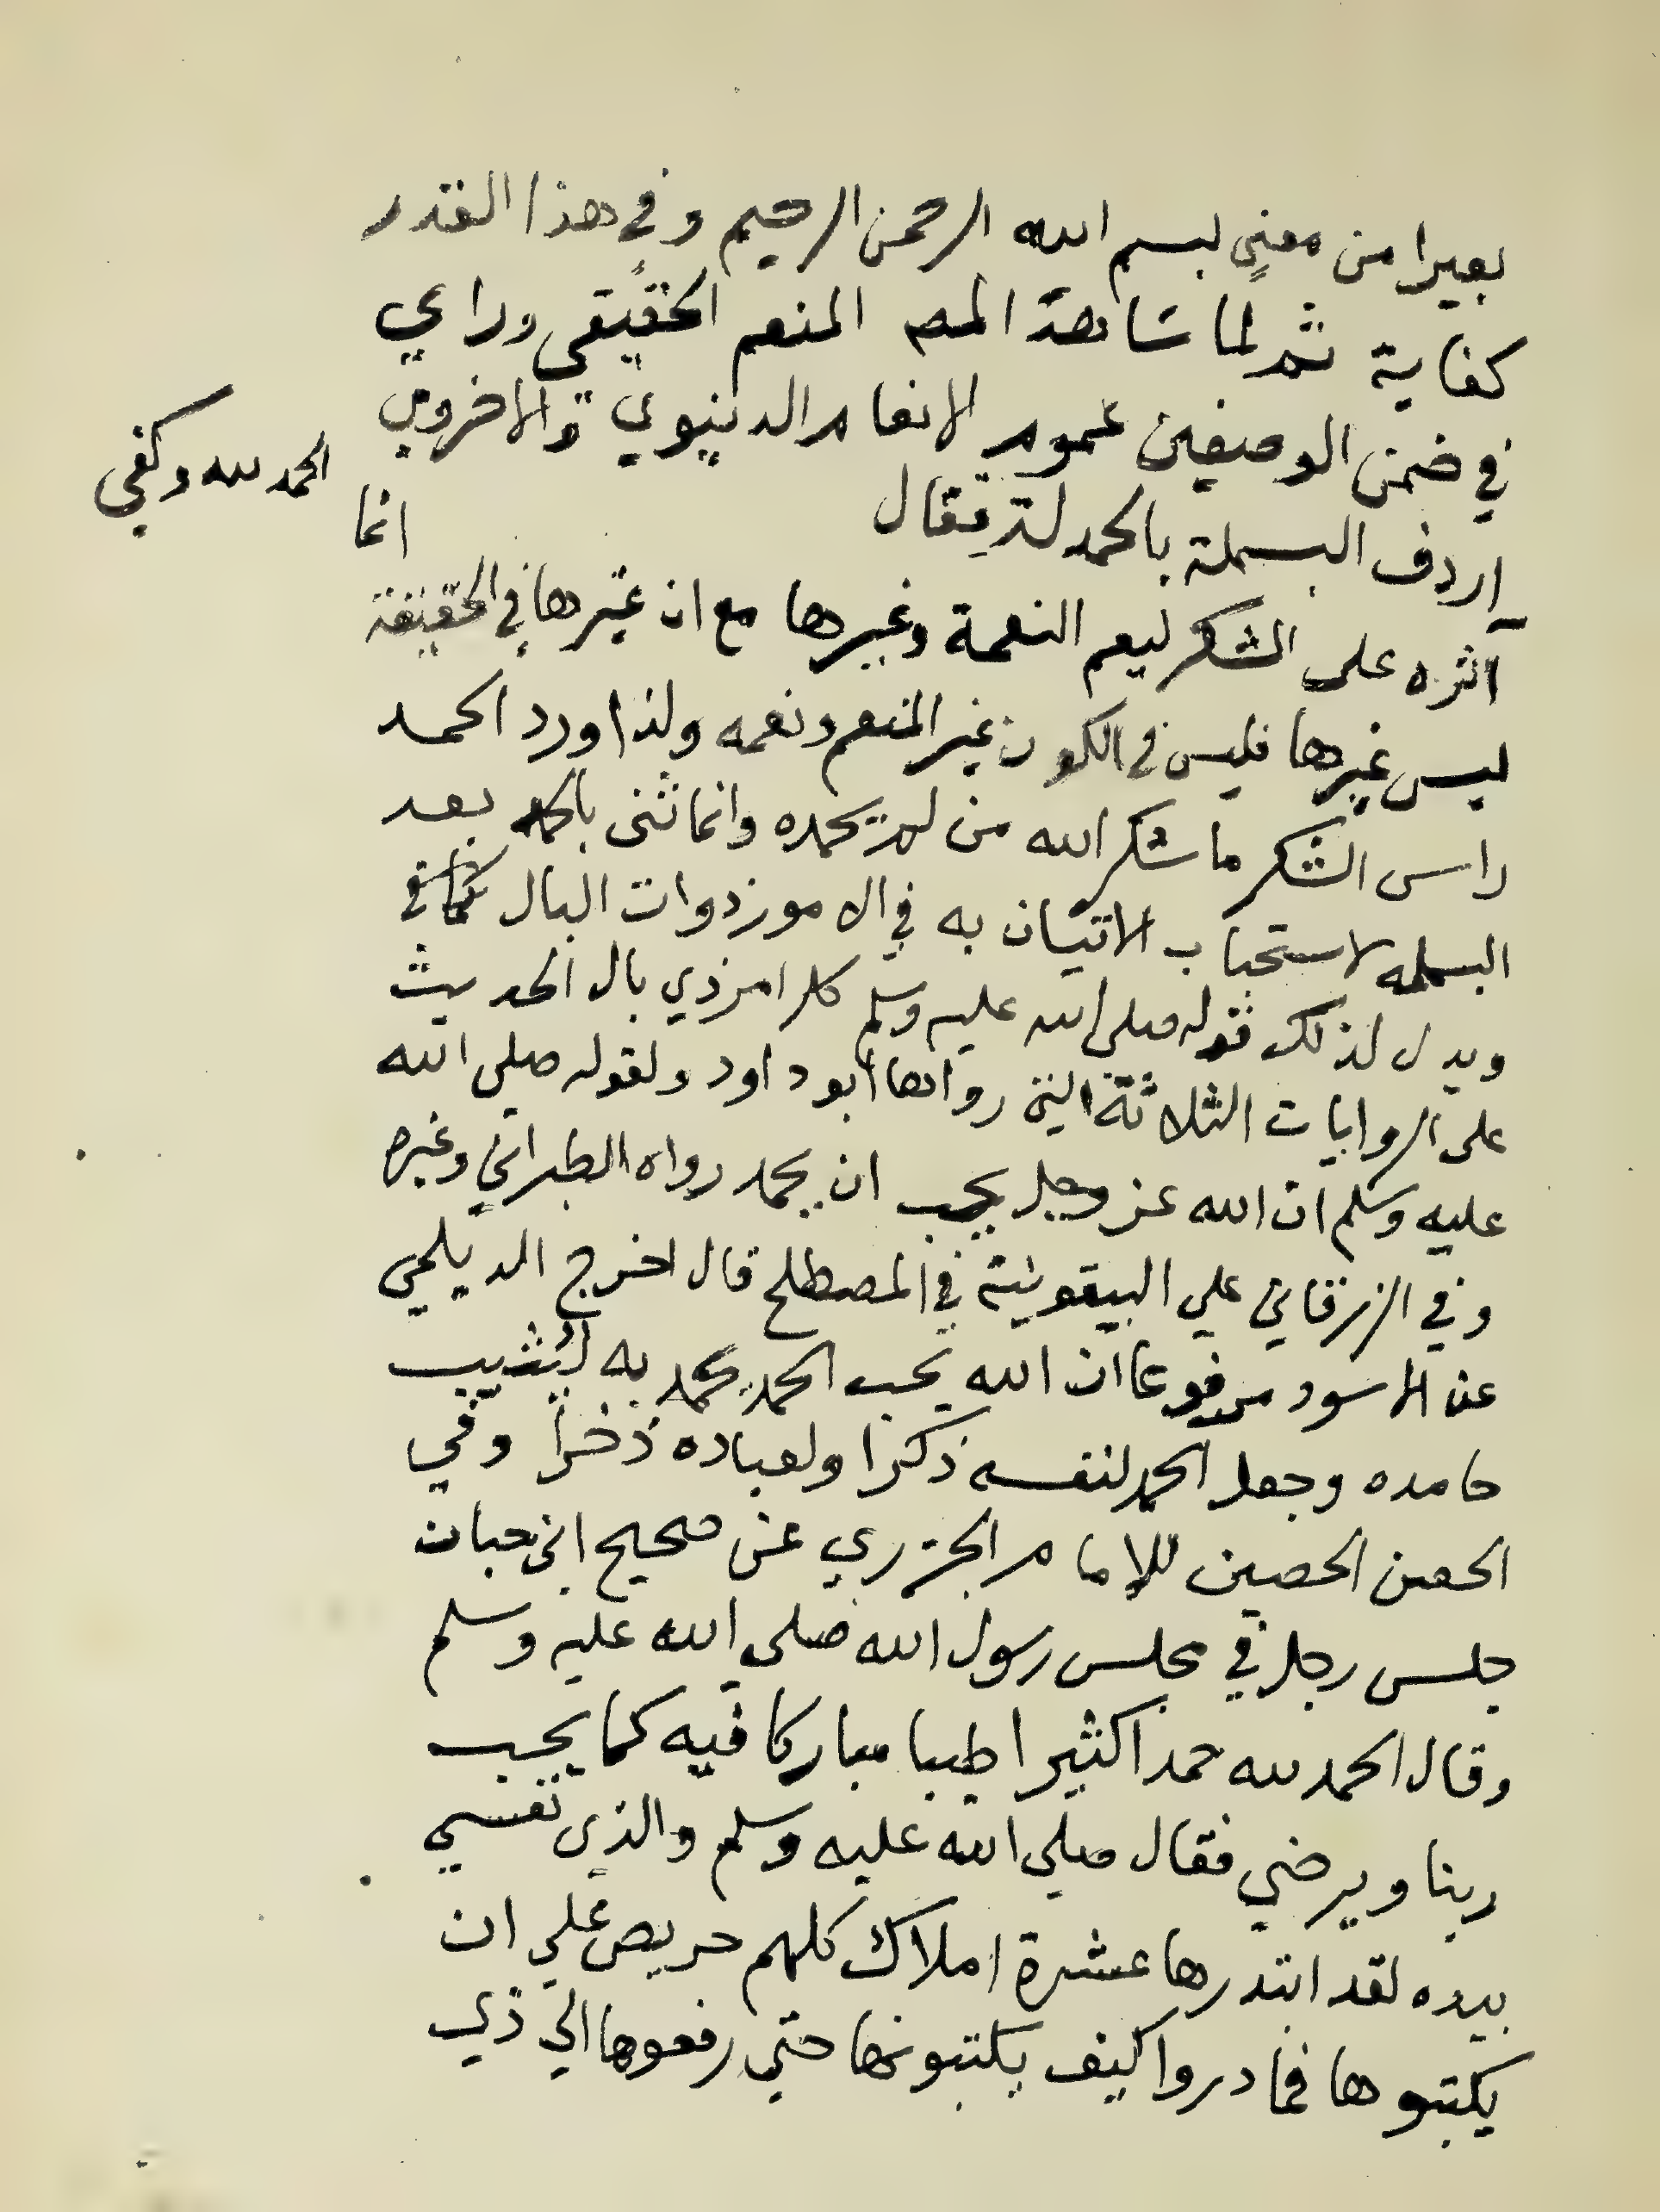 بعيرا من معنى بسم الله الرحمن الرحيم وفي هذا القدر
كفاية ثم لما شاهد المص المنعم الحقيقي وراي
في ضمن الوصفين عموم الانعام الدنيوي والاخروي
اردف البسملة بالحمدلة فقال
الحمد لله وكفي
انما
آثره على الشكر ليعم النعمة وغيرها مع ان غيرها في الحقيقة
ليس غيرها فليس في الكون غير المنعم ونعمه ولذا ورد الحمد
راس الشكر ما شكر الله من لم يحمده وانما ثنى بالحمد بعد
البسمله لاستحباب الاتيان به في الامور ذوات البال كما في
ويدل لذلك قوله صلى الله عليه وسلم كل امر ذي بال الحديث
على الروايات الثلاثة التي رواها ابو داود ولقوله صلى الله
عليه وسلم ان الله عز وجل يحب ان يحمد رواه الطبراني وغيره
وفي الزرقاني علي البيقونية في المصطلح قال اخرج الديلمي
عن الاسود مرفوعا ان الله يحب الحمد يحمد به ليثيب
حامده وجعل الحمد لنفسه ذكرا ولعباده ذخرا وفي
الحصن الحصين للامام الجزري عن صحيح ابن حبان
جلس رجل في مجلس رسول الله صلى الله عليه وسلم
وقال الحمد لله حمدا كثيرا طيبا مباركا فيه كما يحب
ربنا ويرضي فقال صلي الله عليه وسلم والذي نفسي
بيده لقد ابتدرها عشرة املاك كلهم حريص علي ان
يكتبوها فما دروا كيف يكتبونها حتي رفعوها الي ذي